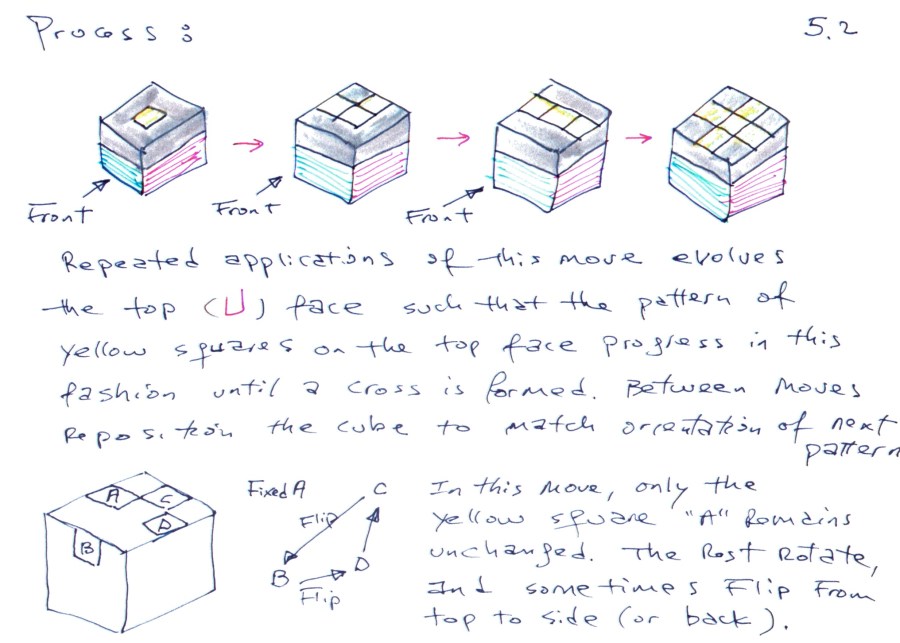 Process: 5.2
Front Front Front
Repeated applications of this move evolves
the top (U) face such that the pattern of
yellow squares on the top face progress in this
fashion until a cross is formed. Between moves
Reposition the cube to match orientation of next
pattern
A C D B
Fixed A C
Flip
B D
Flip
In this move, only the
yellow square "A" Remains
unchanged. The Rest Rotate,
And sometimes Flip From
top to side (or back).